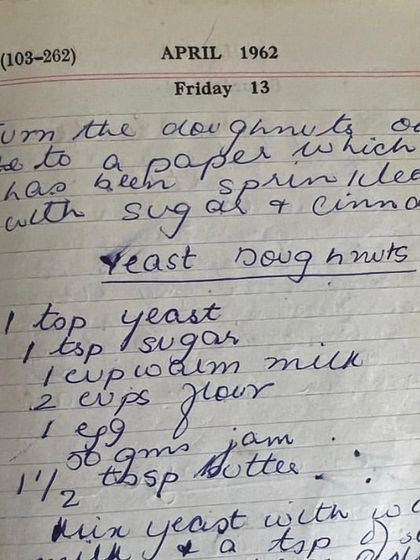 (103–262) APRIL 1962
Friday 13
urn the doughnuts o
to a paper which
has been sprinkled
with sugar + cinna
Yeast Doughnuts
1 tsp yeast
1 tsp sugar
1 cup warm milk
2 cups flour
1 egg
50 gms jam
1 1/2 tbsp butter
Mix yeast with wa
milk & a tsp of s